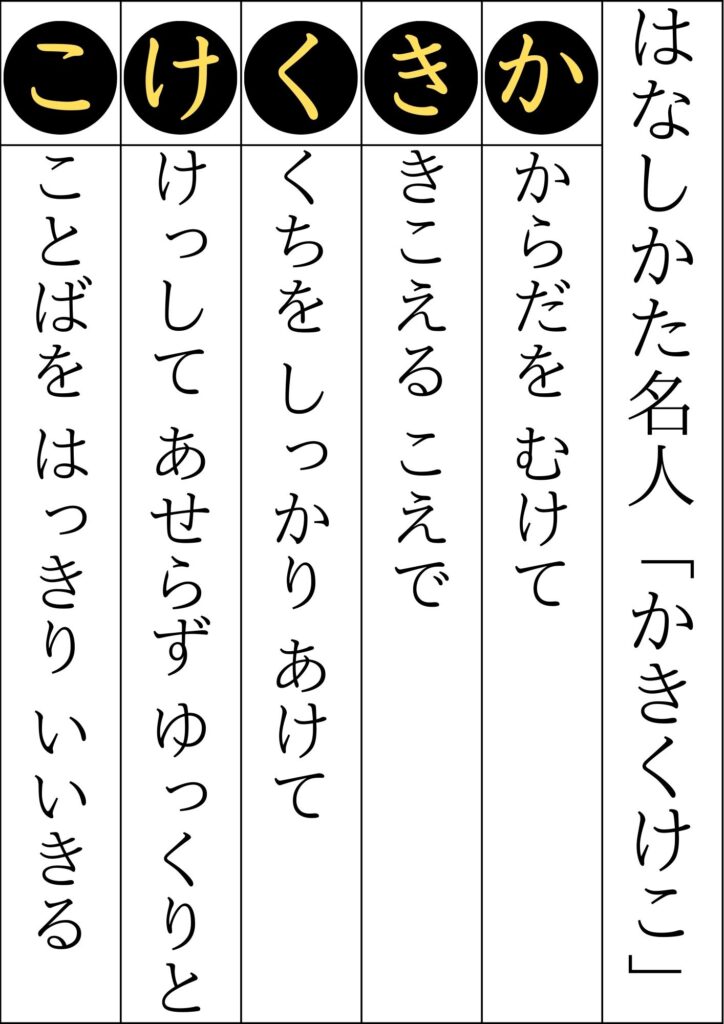 はなしかた名人「かきくけこ」
か
からだを むけて
き
きこえる こえで
く
くちを しっかり あけて
け
けっして あせらず ゆっくりと
こ
ことばを はっきり いいきる